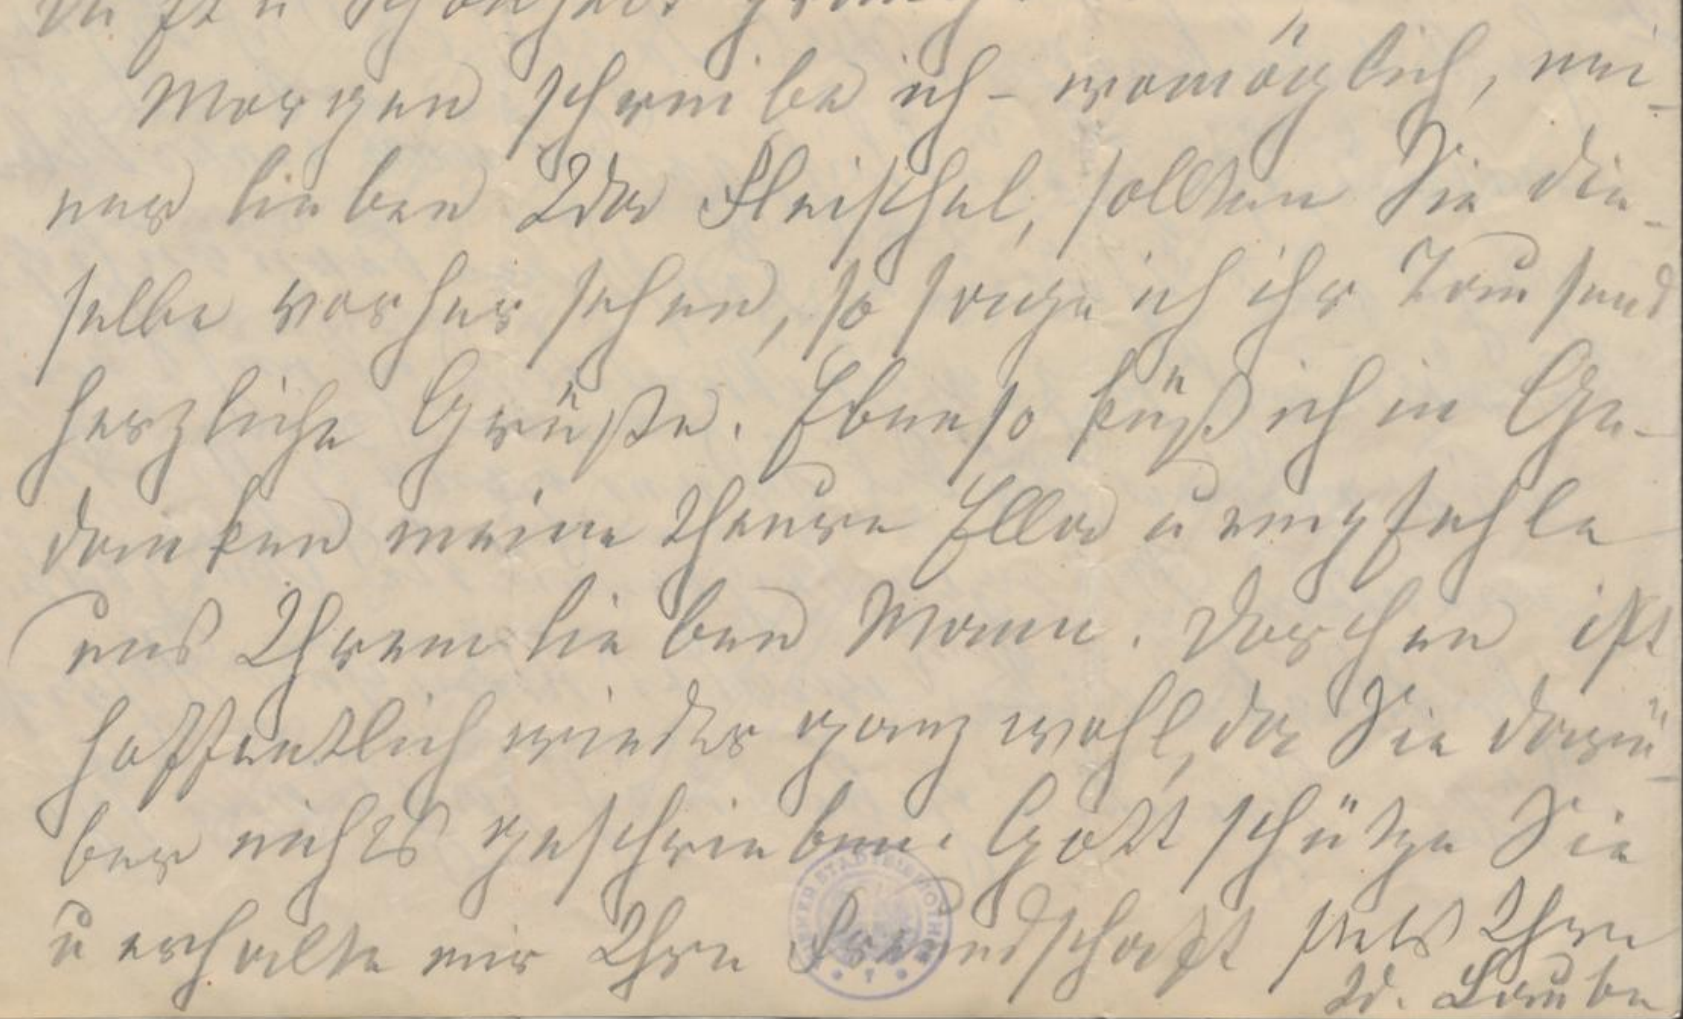 Morgen schreibe ich – womöglich, mei-
ner lieben Ida Fleischel, sollten Sie die-
selbe vorher sehen, so sage ich ihr Tausend
herzliche Grüße. Ebenso küß ich in Ge-
danken meine theure Ella u empfehle
uns Ihrem lieben Mann. Dorchen ist
hoffentlich wieder ganz wohl, da Sie darü-
ber nichts geschrieben. Gott schütze Sie
u erhalte mir Ihre Freundschaft stets Ihre
Id. Laube